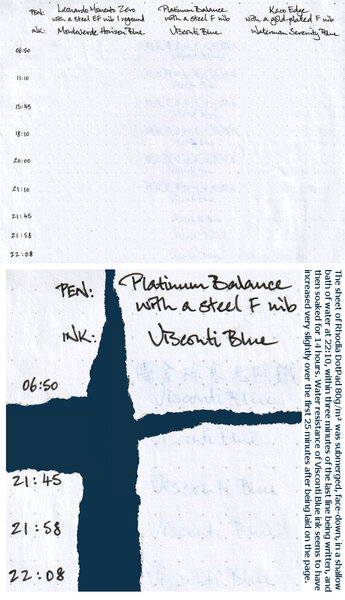 PEN: Leonardo Momento Zero with a steel EF nib I reground
Platinum Balance with a steel F nib
Kaco Edge with a gold-plated F nib
INK: Monteverde Horizon Blue
Visconti Blue
Waterman Serenity Blue
06:50
11:10
15:45
18:10
20:00
21:10
21:45
21:58
22:08
PEN: Platinum Balance
with a steel F nib
INK: Visconti Blue
06:50
Visconti Blue
Visconti Blue
21:45 Visconti Blue
21:58 Visconti Blue
22:08 Visconti Blue
The sheet of Rhodia DotPad 80g/m² was submerged, face-down, in a shallow
bath of water at 22:10, within three minutes of the last line being written, and
then soaked for 14 hours. Water resistance of Visconti Blue ink seems to have
increased very slightly over the first 25 minutes after being laid on the page.